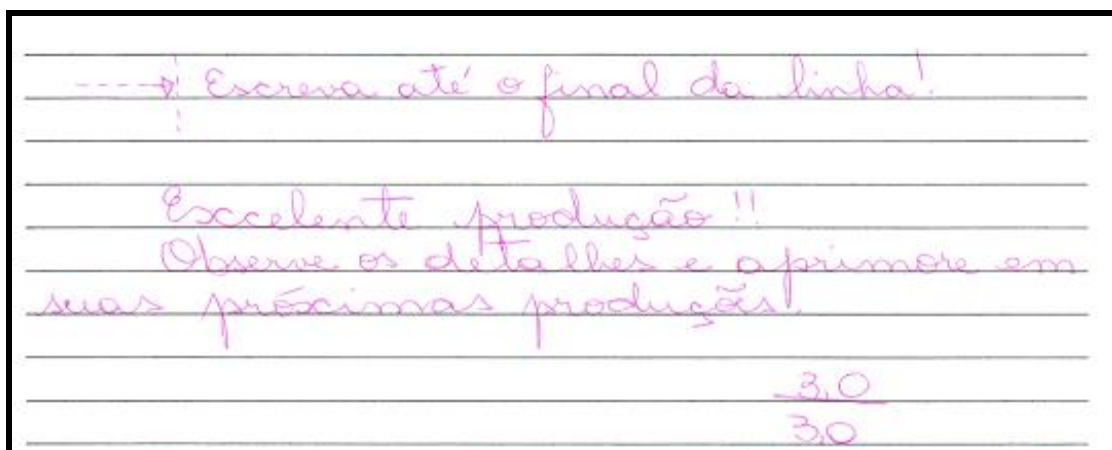 Escreva até o final da linha!
Excelente produção!!
Observe os detalhes e aprimore em
suas próximas produções!
3,0
3,0